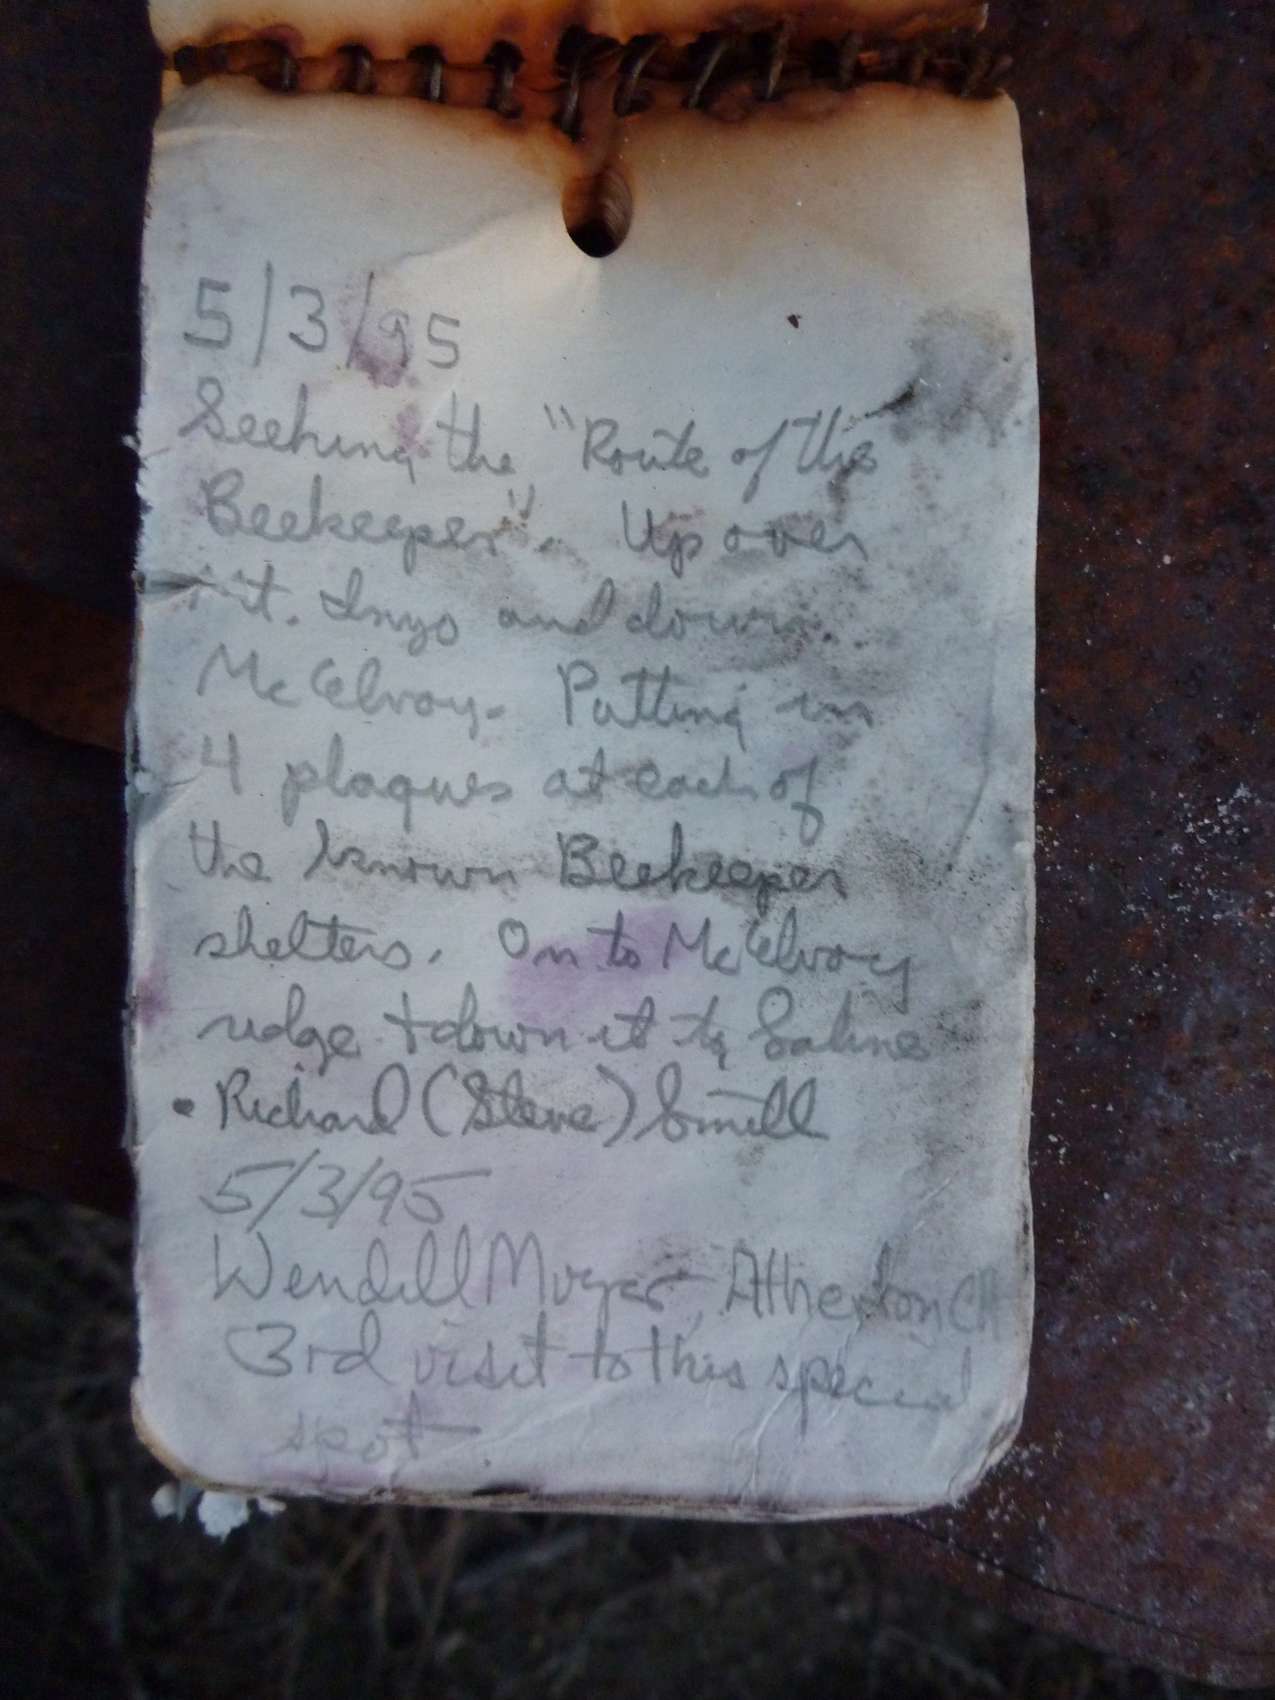 5/3/95
Seeking the "Route of the
Beekeeper". Up over
Mt. Inyo and down
McElvoy. Putting in
4 plaques at each of
the known Beekeeper
shelters. On to McElvoy
ridge + down it to Saline
• Richard (Steve) Smill
5/3/95
Wendell Moyer, Atherton CA
3rd visit to this special
spot.